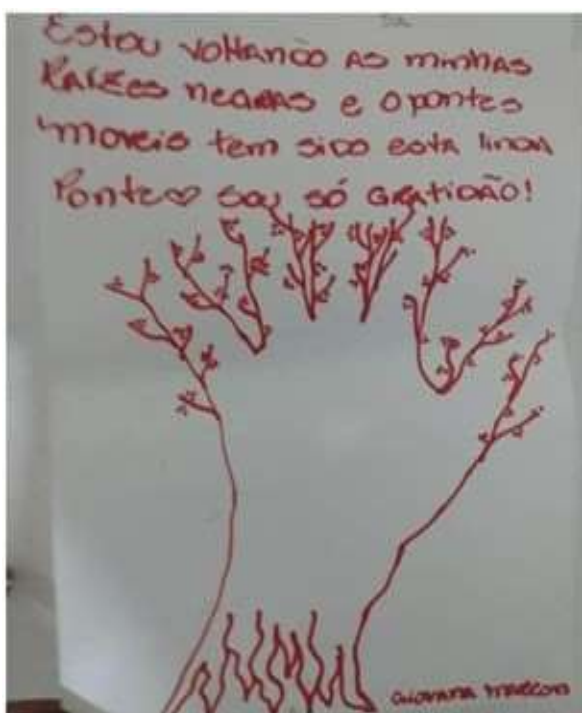 Estou voltando as minhas
Raízes negras e o pontes
moveis tem sido esta linda
Ponte♡ sou só gratidão!
Giovana Marconi